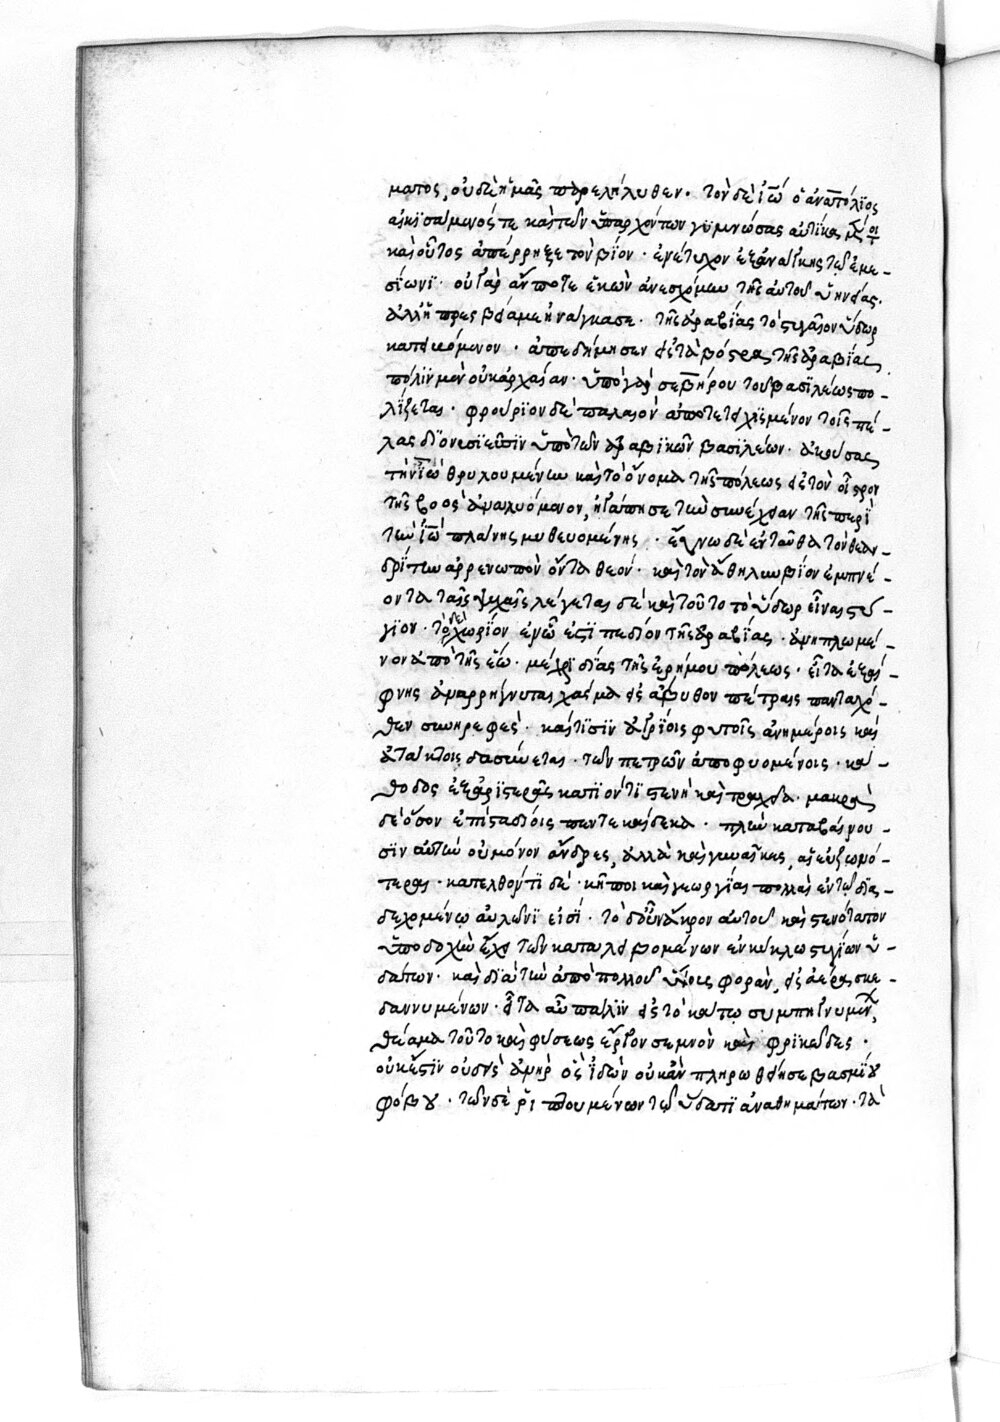 ματος, οὐδὲ ἡμᾶς παρελήλυθεν. τὸν δὲ ἰῶ ὁ ἀναπόλϊος
αἰκϊσάμενός τε καὶ τῶν ὑπαρχόντων γυμνώσας αὐτίκα
καὶ οὗτος ἀπέρρηξε τὸν βίον. ἐνέτυχον ἐξ ἀνάγκης τῶ ἐμε-
σίωνϊ. οὐ γὰρ ἄν ποτε ἑκὼν ἀνεσχόμην τῆς αὐτοῦ
με ἠνάγκασε. τῆς ἀραβίας τὸ στύγϊον ὕδωρ
κατϊόμενον. ἀπεδήμησεν εἰς τὰ βόστρα τῆς ἀραβίας
πόλϊν μὲν οὐκ ἀρχαίαν. ὑπὸ γὰρ σεβήρου τοῦ βασϊλέως πο-
λίζεται. φρούρϊον δὲ παλαιὸν ἀποτετειχϊσμένον τοῖς πέ-
λας δϊονυσϊεῦσϊν ὑπὸ τῶν ἀραβϊκῶν βασϊλέων. ἀκούσας
τὴν ἰῶ θρυλουμένην καὶ τὸ ὄνομα τῆς πόλεως εἰς τὸν οἶστρον
τῆς βοὸς ἀναλυόμενον, ἠγάπησε τὴν συνέχειαν τῆς περὶ
τὴν ἰῶ πλάνης μυθευομένης. ἔγνω δὲ ἐνταῦθα τὸν θεαν-
δρίτην ἀρρενωπὸν ὄντα θεόν. καὶ τὸν ἄθηλυν βίον ἐμπνέ-
οντα ταῖς ψυχαῖς λέγεται δὲ καὶ τοῦτο τὸ ὕδωρ εἶναι στύ-
γϊον. τὸ δὲ χωρίον ἐν ᾧ ἐστϊ πεδίον τῆς ἀραβίας. ἀνηπλωμέ-
νον ἀπὸ τῆς ἕω. μέχρϊ δίας τῆς ἐρήμου πόλεως. εἶτα ἐξαί-
φνης ἀναρρήγνυται χάσμα εἰς ἄβυθον πέτραις πανταχό-
θεν συνηρεφές. καί τϊσϊν ἀγρίοις φυτοῖς ἀνημέροις καὶ
ἀτάκτοις δασύνεται. τῶν πετρῶν ἀποφυομένοις. κά-
θοδος ἐξ ἀρϊστερᾶς κατϊόντϊ στενὴ καὶ τραχεῖα. μακρὰ
δὲ ὅσον ἐπὶ σταδίοις πεντεκαίδεκα. πλὴν καταβαίνου-
σϊν αὐτὴν οὐ μόνον ἄνδρες, ἀλλὰ καὶ γυναῖκες, αἱ εὐζωνό-
τεραι. κατελθόντϊ δὲ. κῆποι καὶ γεωργίαι πολλαὶ ἐν τῷ δϊα-
δεχομένῳ αὐλῶνϊ εἰσϊ. τὸ δ᾽ οὖν ἄκρον αὐτοῦ καὶ στενότατον
ὑποδοχὴν ἔχει τῶν καταλειβομένων ἐν κύκλω στυγίων ὑ-
δάτων. καὶ δϊὰ τὴν ἀπὸ πολλοῦ ὕψους φορὰν, εἰς ἀέρα σκε-
δαννυμένων. εἶτα αὖ πάλϊν εἰς τὸ κάτω συμπηγνυμένων,
θέαμα τοῦτο καὶ φύσεως ἔργον σεμνὸν καὶ φρϊκῶδες.
οὐκ ἔστϊν οὐδεὶς ἀνὴρ ὃς ἰδὼν οὐκ ἂν πληρωθείη σεβασμίου
φόβου. τῶν δὲ ῥϊπτουμένων τῷ ὕδατϊ ἀναθημάτων. τὰ